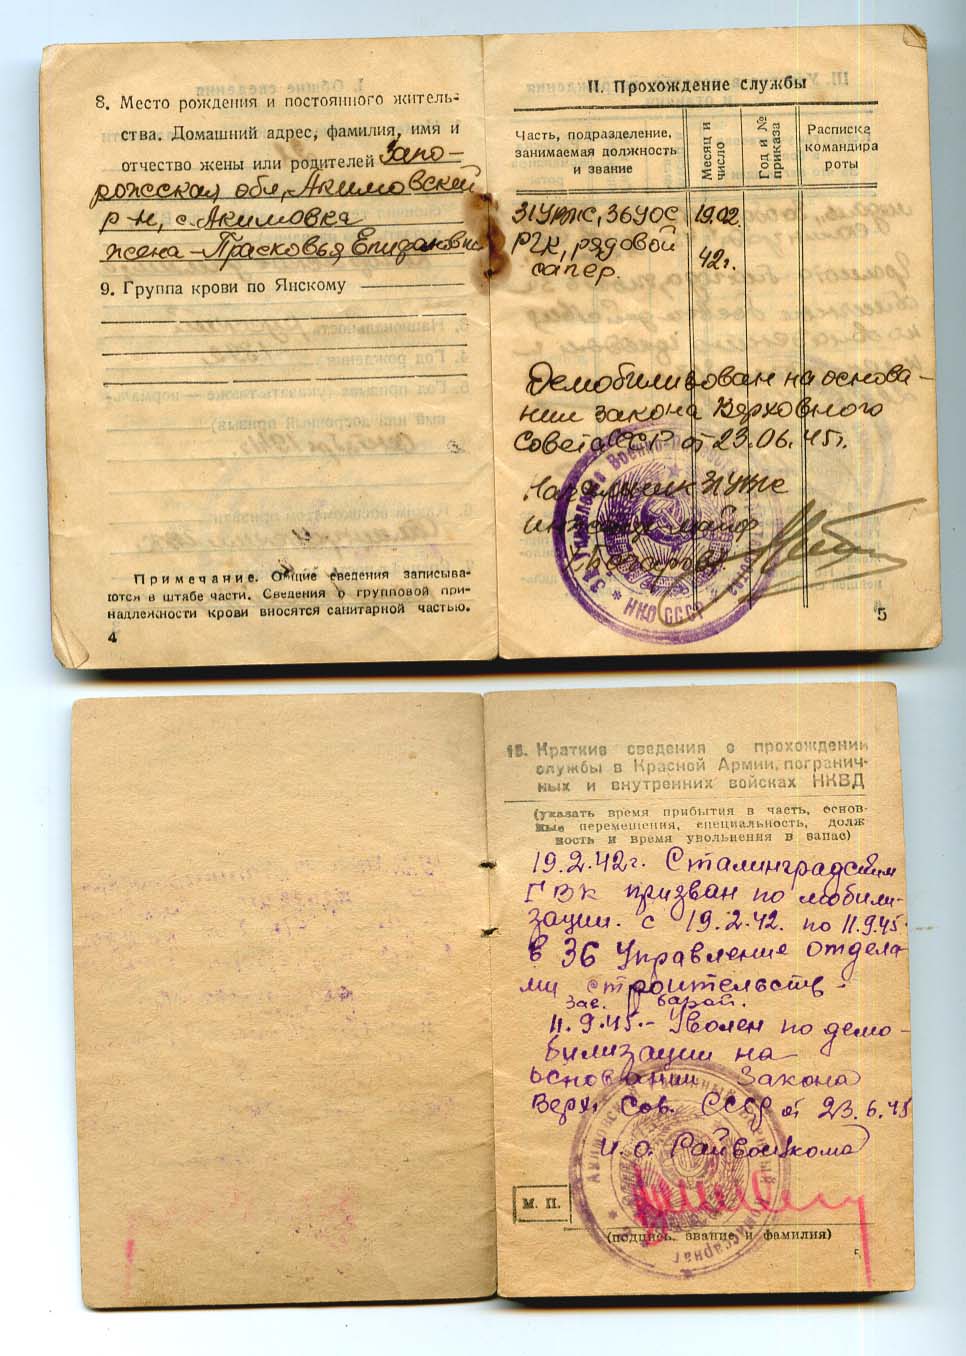 8. Место рождения и постоянного житель-
ства. Домашний адрес, фамилия, имя и
отчество жены или родителей Запо-
рожская обл, Акимовский
р-н, с. Акимовка
жена – Прасковья
9. Группа крови по Янскому
Примечание. Общие сведения записыва-
ются в штабе части. Сведения о групповой при-
надлежности крови вносятся санитарной частью.
4
II. Прохождение службы
Часть, подразделение,
занимаемая должность
и звание
Месяц и
число
Год и №
приказа
Расписка
командира
роты
36 УОС 19.02.
РГК, рядовой 42г.
сапер.
Демобилизован на основа-
нии закона Верховного
Совета СССР от 23.06.45г.
Начальник
НКО СССР
5
Краткие сведения о прохождении
службы в Красной Армии, погранич-
ных и внутренних войсках НКВД
(указать время прибытия в часть, основ-
ные перемещения, специальность, долж
ность и время увольнения в запас)
19.2.42г. Сталинградским
ГВК призван по мобили-
зации. с 19.2.42. по 11.9.45
в 36 Управление отдела-
ми строительств
зав.
11.9.45.- Уволен по демо-
билизации на
основании Закона
Верх. Сов. СССР от 23.6.45
И. О. Райвоенкома
М. П.
(подпись, звание и фамилия)